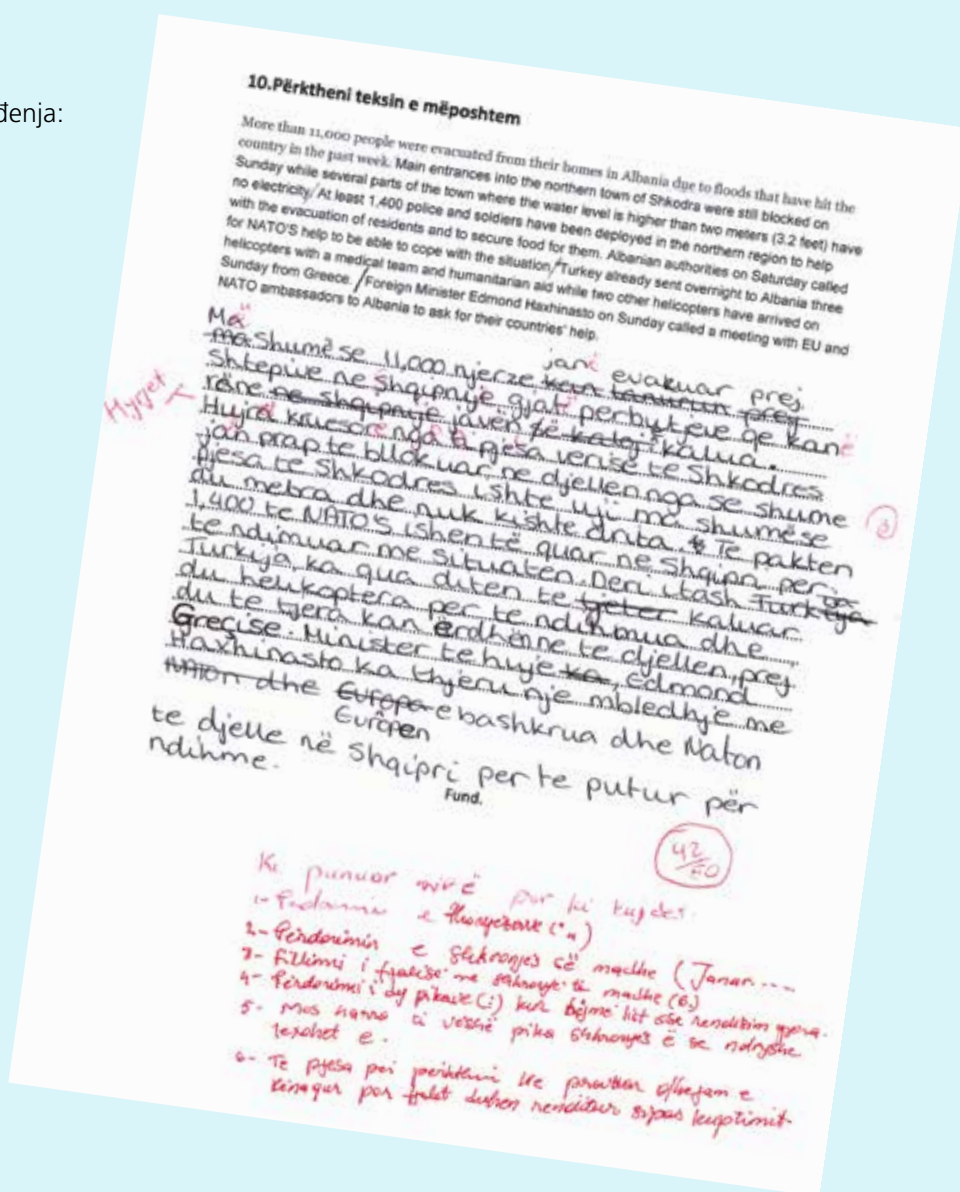 đenja:
10.Përktheni teksin e mëposhtem
More than 11,000 people were evacuated from their homes in Albania due to floods that have hit the
country in the past week. Main entrances into the northern town of Shkodra were still blocked on
Sunday while several parts of the town where the water level is higher than two meters (3.2 feet) have
no electricity/At least 1,400 police and soldiers have been deployed in the northern region to help
with the evacuation of residents and to secure food for them. Albanian authorities on Saturday called
for NATO'S help to be able to cope with the situation/Turkey already sent overnight to Albania three
helicopters with a medical team and humanitarian aid while two other helicopters have arrived on
Sunday from Greece./Foreign Minister Edmond Haxhinasto on Sunday called a meeting with EU and
NATO ambassadors to Albania to ask for their countries' help.
Më
Shumë se 11,000 njerze janë evakuar prej
Shtepive ne Shqipnije gjatë perbytjeve qe kanë
rëne javën kalua.
Hyrjet
Hujra kruesore nga pjesa verise te Shkodres
jan prap te bllokuar ne djellen nga se shume
pjesa te Shkodres ishte uji ma shumë se
du metra dhe nuk kishte drita. Te pakten
1,400 te NATO'S ishen të quar ne Shqipri per
te ndimuar me situaten. Deri itash
Turkija ka qua diten te kaluar
du helikoptera per te ndihmua dhe
du te tjera kan ërdhën ne te djellen, prej
Grecise. Minister te huje, Edmond
Haxhinasto ka thjeru nje mbledhje me
Europen e bashkrua dhe Naton
te djelle në Shqipri per te putur për
ndihme.
Fund.
42/50
Ki punuar mirë por ki kujdes.
1- e thonjezave („)
2- Përdorimin e shkronjes së madhe (Janar....
3- Fillimi i fjalisë me shkronje të madhe (6.)
4- Përdorimi i dy pikave (:) kur bëjmë list ose renditim gjera.
5- Mos harro ti veshë pika shkronjës ë se ndryshe
lexohet e.
6- Te pjesa për përkthimi
kënaqur por fjalët duhen renditur sipas kuptimit.